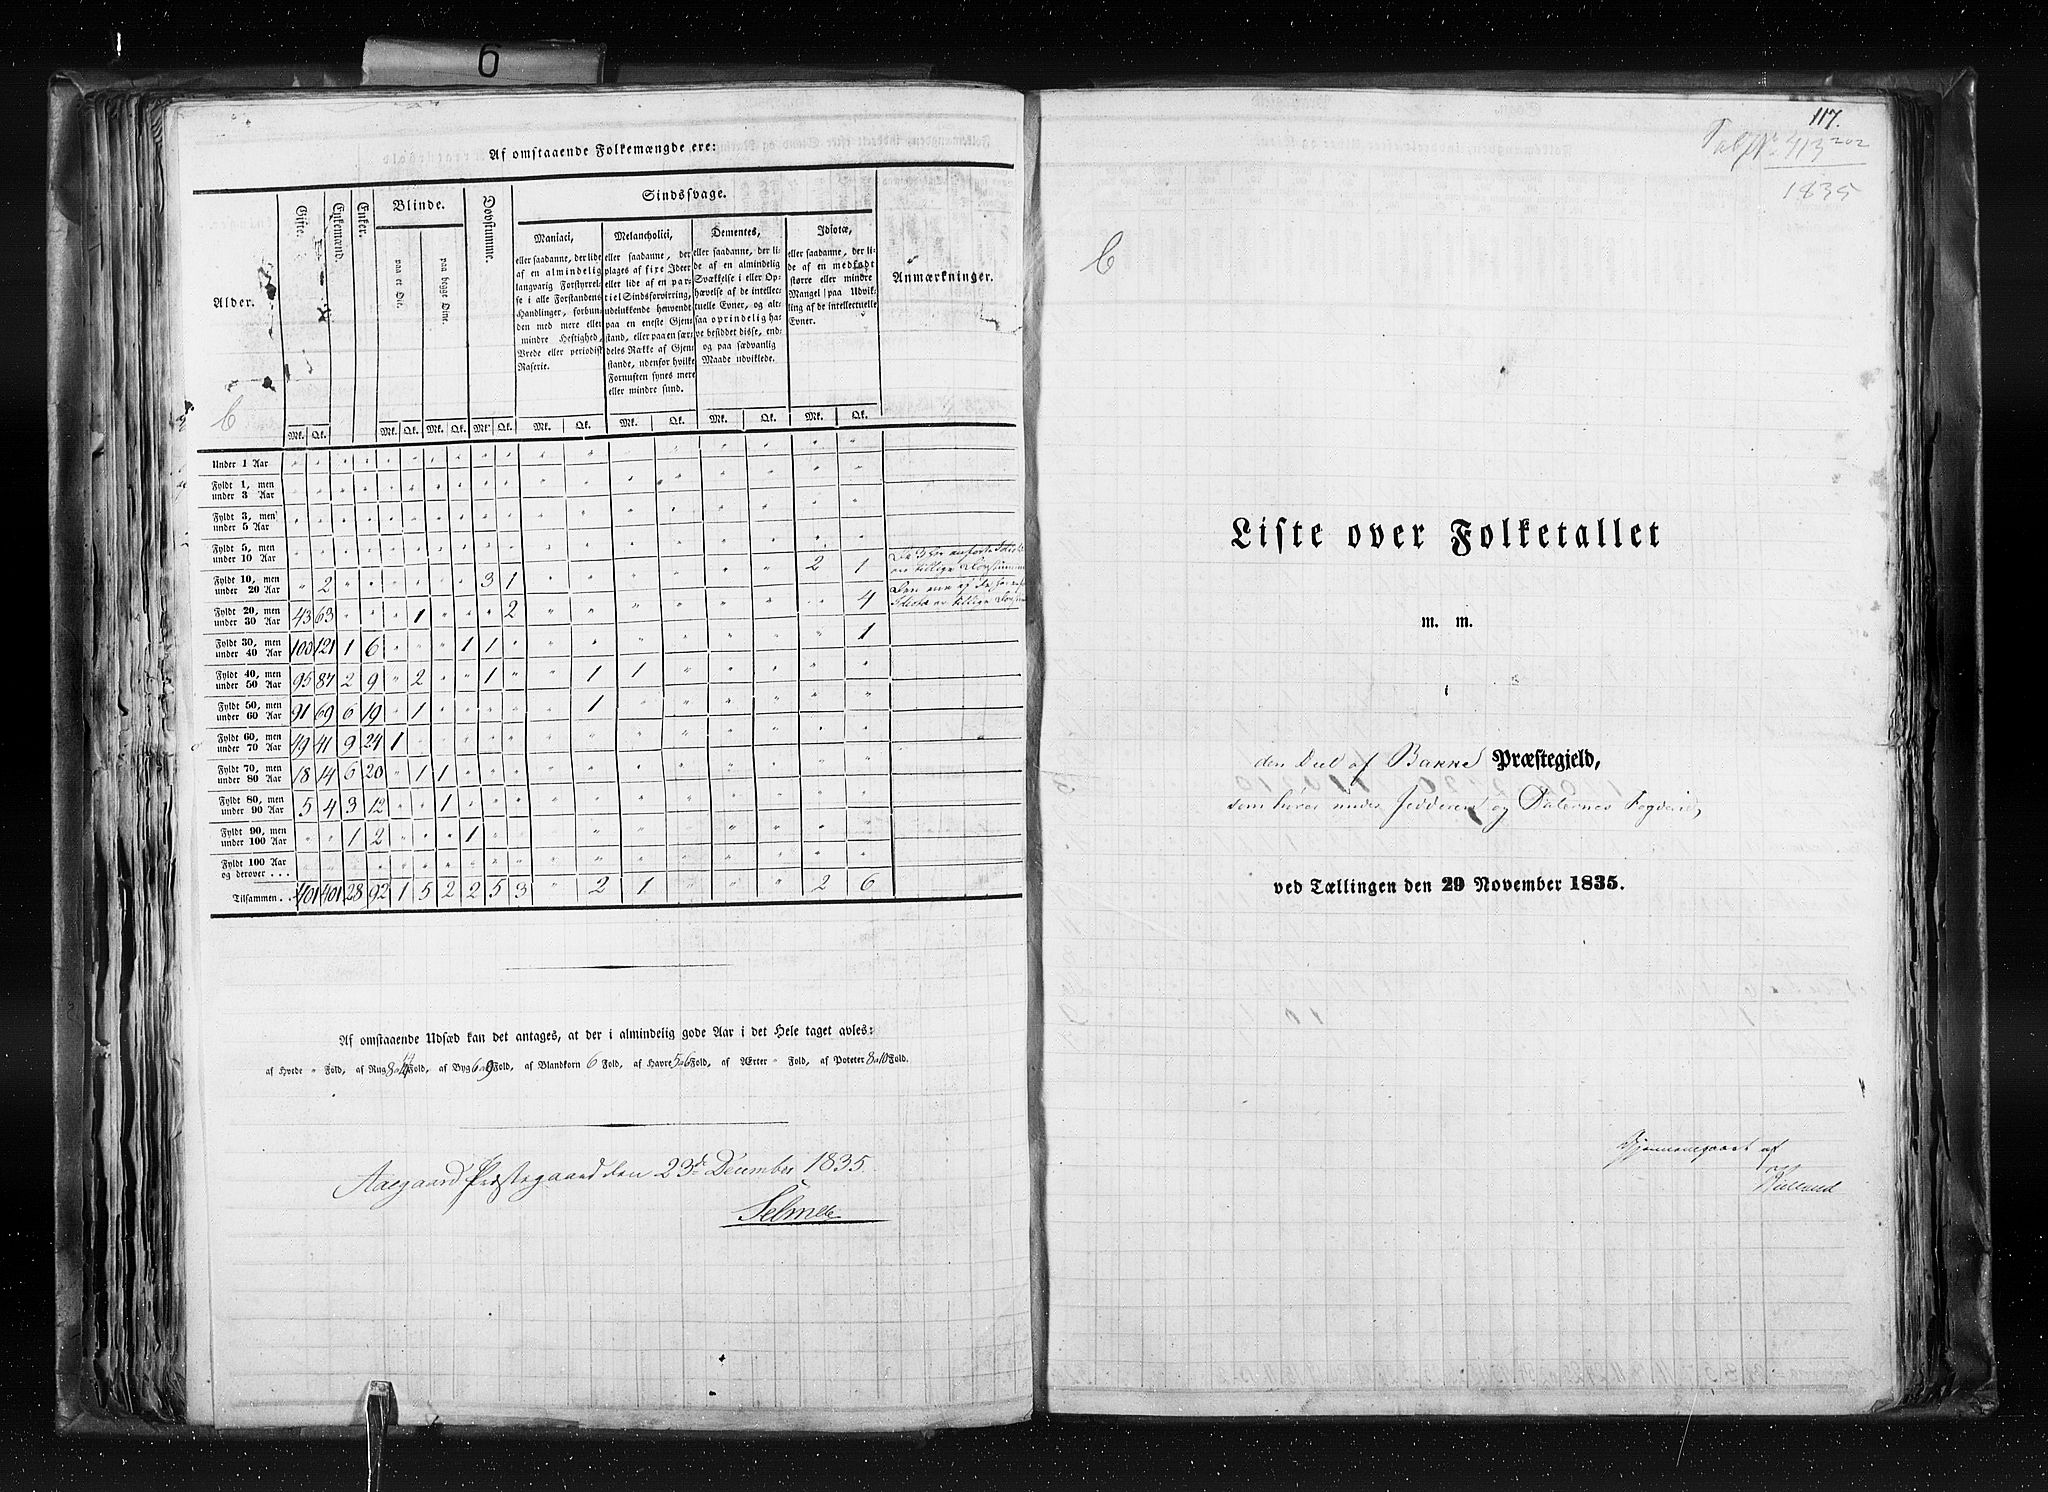 6
Af omstaaende Folkemængde ere:
Alder.
Gifte.
Enkemænd.
Enker.
Blinde.
paa et Øie.
paa begge Øine.
Døvstumme.
Sindssvage.
Maniaci,
eller saadanne, der lide
af en almindelig
langvarig Forstyrrel-
se i alle Forstandens
Handlinger, forbun-
den med mere eller
mindre Heftighed,
Vrede eller periodisk
Raserie.
Melancholici,
eller saadanne, der
plages af fixe Ideer
eller lide af en par-
tiel Sindsforvirring,
udelukkende henvendt
paa en eneste Gjen-
stand, eller paa en sær-
deles Række af Gjen-
stande, udenfor hvilke
Fornuften synes mere
eller mindre sund.
Dementes,
eller saadanne, der li-
de af en almindelig
Svækkelse i eller Op-
hævelse af de intellec-
tuelle Evner, og alt-
saa oprindelig ha-
ve besiddet disse, end-
og paa sædvanlig
Maade udviklede.
Idiotæ,
eller saadanne, der li-
de af en medfødt
større eller mindre
Mangel paa Udvik-
ling af de intellectuelle
Evner.
Anmærkninger.
C
Mk. Qk. Mk. Qk. Mk. Qk. Mk. Qk. Mk. Qk. Mk. Qk. Mk. Qk. Mk. Qk.
Under 1 Aar " " " " " " " " " " " " " " " " " "
Fyldt 1, men under 3 Aar " " " " " " " " " " " " " " " " " "
Fyldt 3, men under 5 Aar " " " " " " " " " " " " " " " " " "
Fyldt 5, men under 10 Aar " " " " " " " " " " " " " " " " " "
Fyldt 10, men under 20 Aar " 2 " " " " " " 3 1 " " " " " " 2 1
Fyldt 20, men under 30 Aar 43 63 " " " 1 " " " 2 " " " " " " " 4
Fyldt 30, men under 40 Aar 100 121 1 6 " " " 1 1 " " " " " " " " 1
Fyldt 40, men under 50 Aar 95 87 2 9 " 2 " " 1 " " 1 1 " " " " "
Fyldt 50, men under 60 Aar 91 69 6 19 " 1 " " " " " 1 " " " " " "
Fyldt 60, men under 70 Aar 49 41 9 24 1 " " " " " " " " " " " " "
Fyldt 70, men under 80 Aar 18 14 6 20 " 1 1 " " " " " " " " " " "
Fyldt 80, men under 90 Aar 5 4 3 12 " " 1 " " " " " " " " " " "
Fyldt 90, men under 100 Aar " " 1 2 " " " 1 " " " " " " " " " "
Fyldt 100 Aar og derover . . . " " " " " " " " " " " " " " " " " "
Tilsammen . . 401 401 28 92 1 5 2 2 5 3 " 2 1 " " " 2 6
Af omstaaende Udsæd kan det antages, at der i almindelig gode Aar i det Hele taget avles:
af Hvede " Fold, af Rug 8 a 14 Fold, af Byg 6 a 9 Fold, af Blandkorn 6 Fold, af Havre 5 a 6 Fold, af Ærter " Fold, af Poteter 8 a 10 Fold.
Aaegaard Præstegaard den 23d December 1835.
Selmer
117.
202
Tab No 413
1835
C
Liste over Folketallet
m. m.
i
den Deel af Bakke Præstegjeld,
som hører under Jedderens og Dalernes Fogderie,
ved Tællingen den 29 November 1835.
Gjennemgaaet af
Kielland